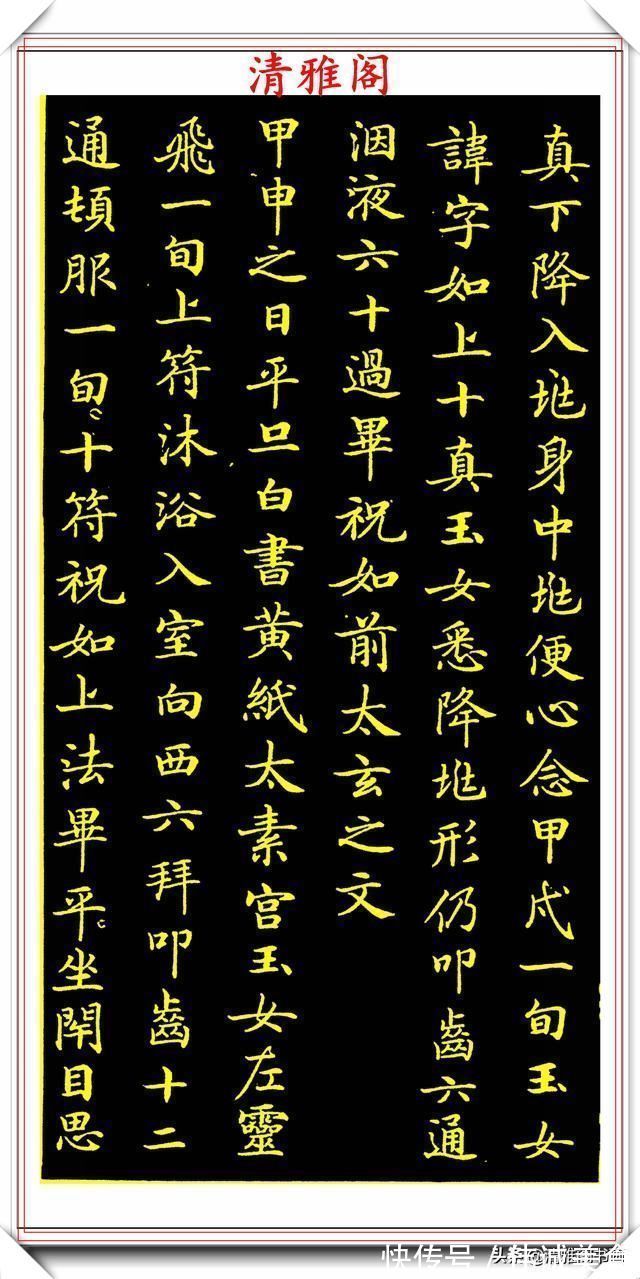 清雅阁
真下降入坔身中坔便心念甲戌一旬玉女
諱字如上十真玉女悉降坔形仍叩齒六通
咽液六十過畢祝如前太玄之文
甲申之日平旦白書黄紙太素宫玉女左靈
飛一旬上符沐浴入室向西六拜叩齒十二
通頓服一旬十符祝如上法畢平坐閉目思